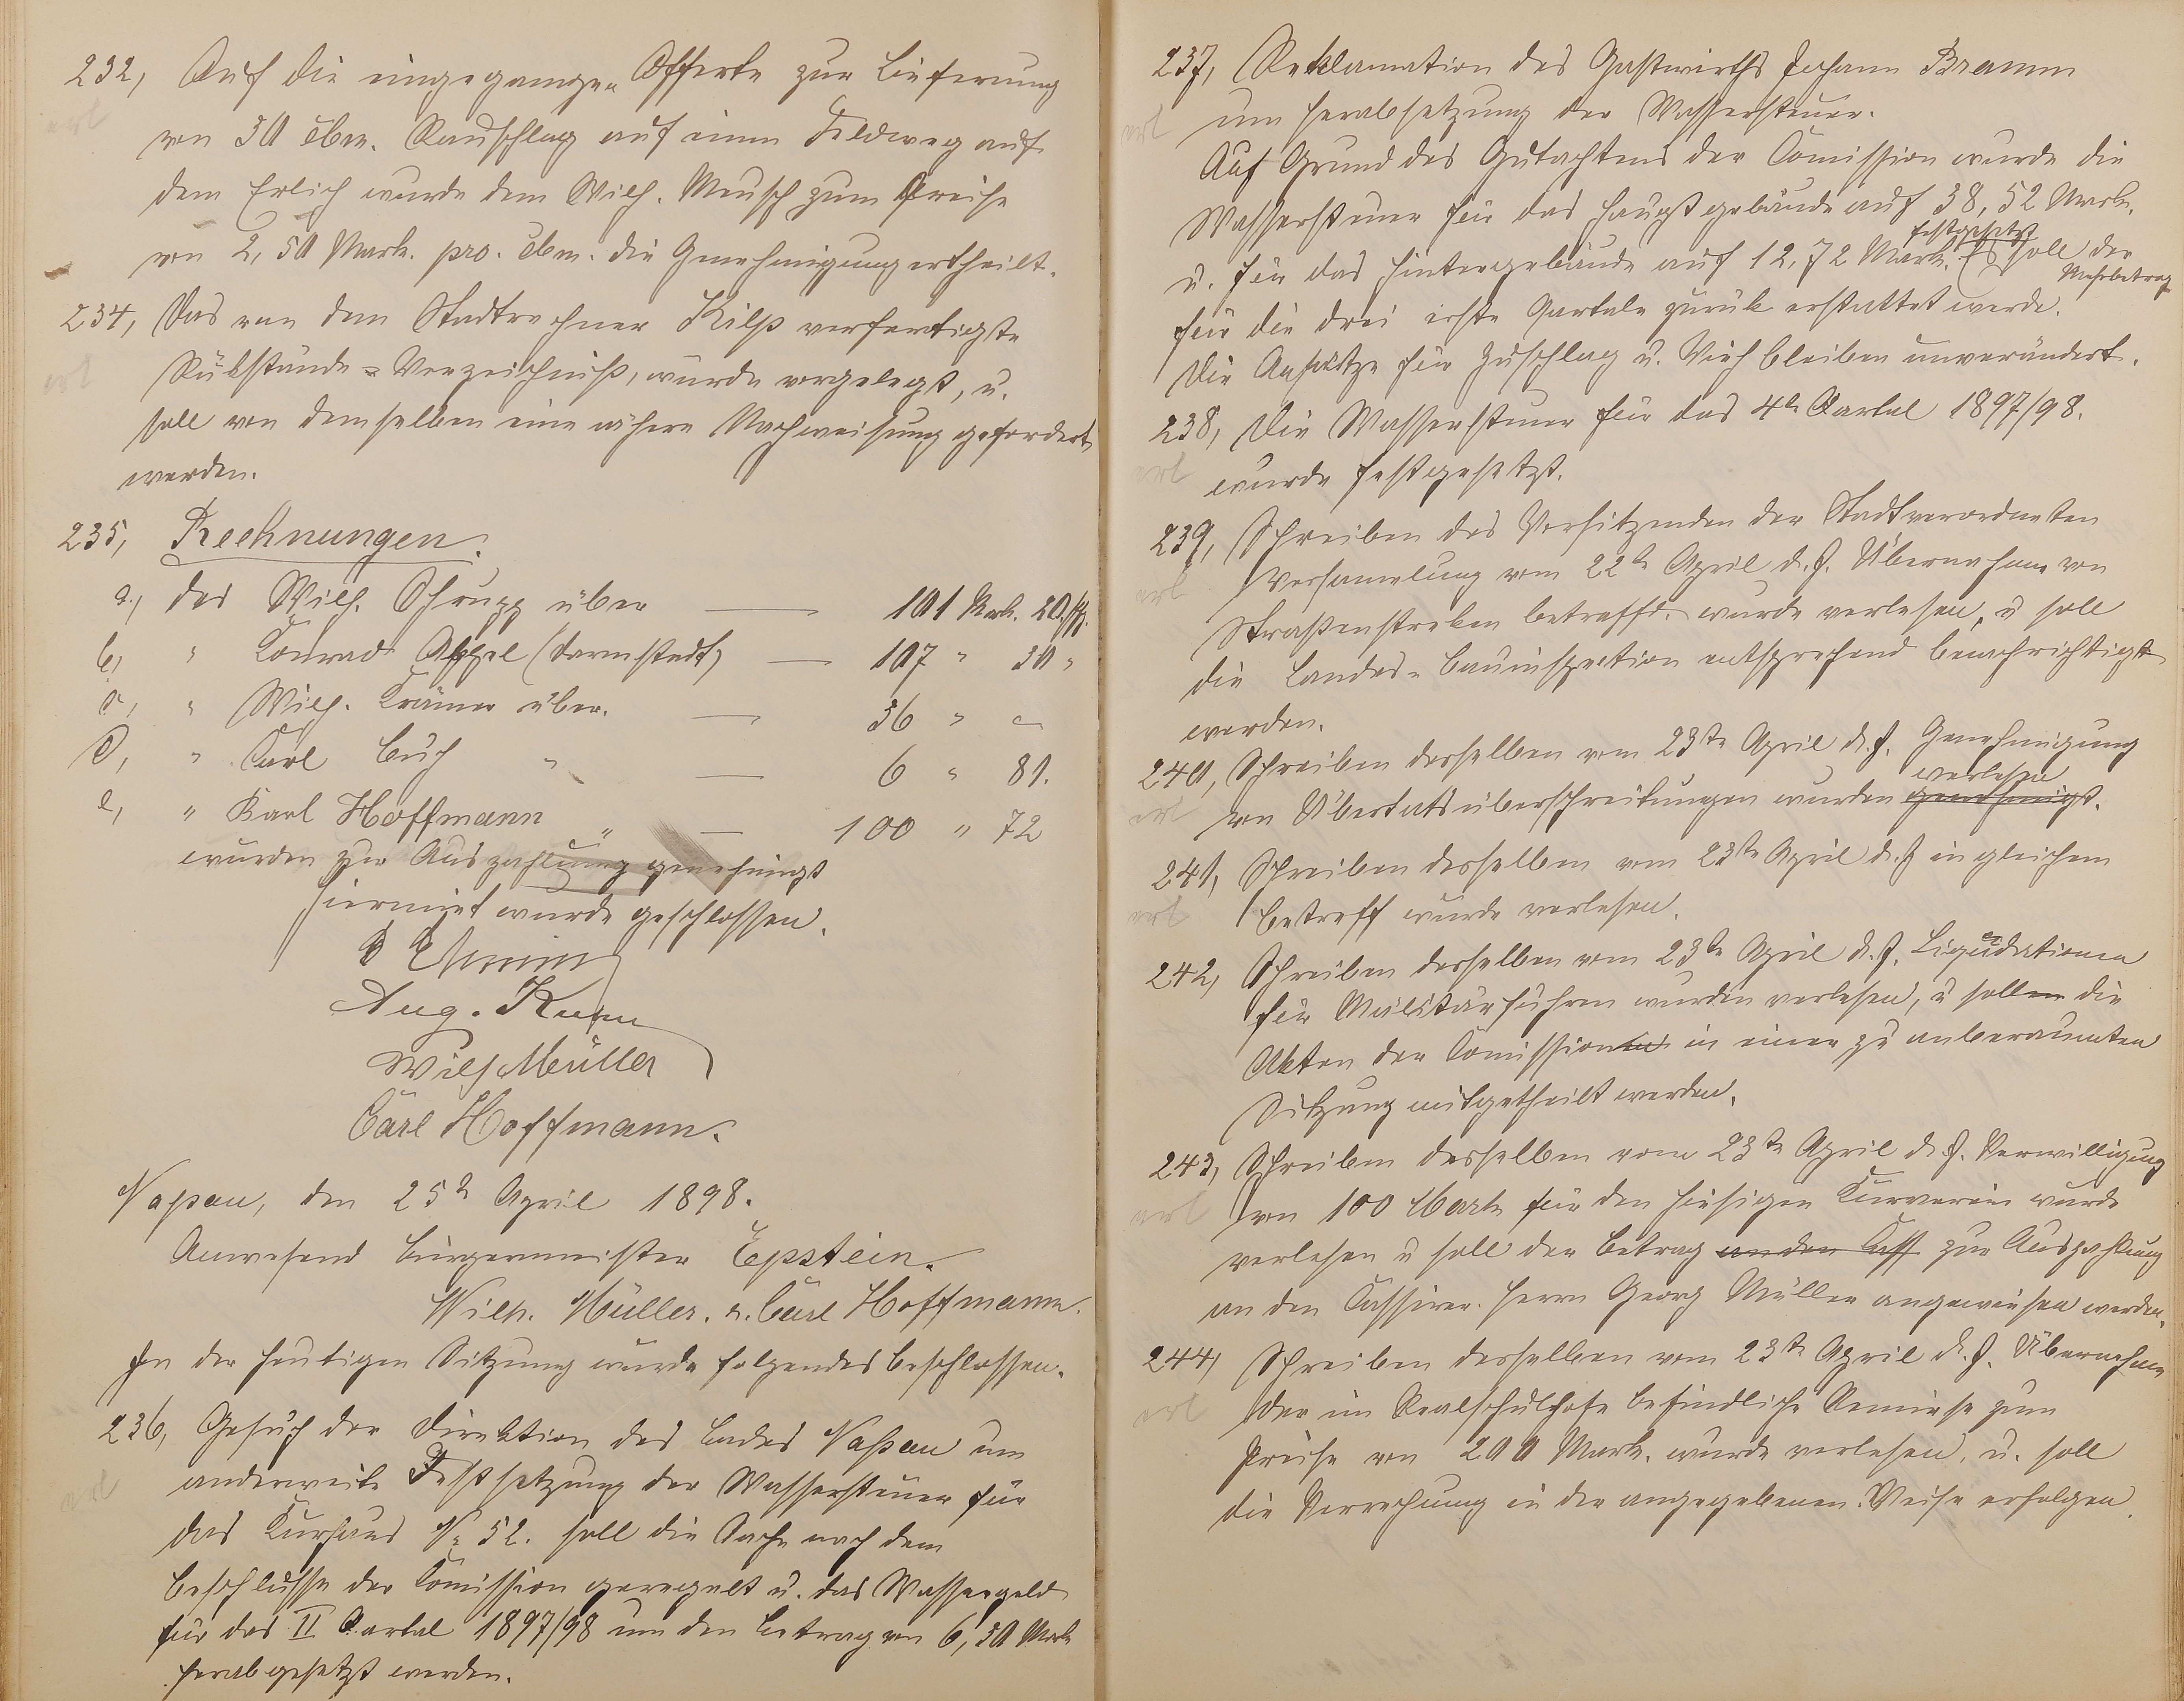 232, Auf die eingegangen Offerte zur Lieferung
erl
von 30 cbm. Rauschlag auf einen Feldweg auf
dem Erlich wurde dem Wilh. Mensch zum Preise
von 2,50 Mark. pro. cbm. die Genehmigung ertheilt.
234, Das von dem Stadtrechner Kilp verfertigte
erl
Rükstände-Verzeichniß, wurde vorgelegt, u.
soll von demselben eine nähere Nachweisung gefordert
werden.
235, Rechnungen.
a., des Wilh. Schrupp über — 101 Mark. 20 Pf.
b, " Konrad Appel (Darmstadt) — 107 " 30 "
c, " Wilh. Krämer über. — 36 " "
d, " Carl Buch " — 6 " 81.
e, " Karl Hoffmann " — 100 " 72
wurden zur Auszahlung genehmigt
Hiermit wurde geschlossen.
Aug. Kuhn
Wilh Müller
Carl Hoffmann.
Naßau, den 25t April 1898.
Anwesend Bürgermeister Epstein.
Wilh. Müller. u. Carl Hoffmann.
In der heutigen Sitzung wurde folgendes beschlossen.
236, Gesuch der Direktion des Bades Naßau um
erl
anderweite Festsetzung der Wassersteuer für
das Kurhaus No 52. soll die Sache nach dem
Beschlusse der Comission geregelt u. das Wassergeld
für das II Qartal 1897/98 um den Betrag von 6,30 Mark
herabgesetzt werden.
237, Reklamation des Gastwirths Johann Bramm
erl
um Herabsetzung der Wassersteuer.
Auf Grund des Gutachtens der Comission wurde die
Wassersteuer für das Hauptgebäude auf 38,52 Mark.
u. für das Hintergebäude auf 12,72 Mark. festgesetzt Es soll der Mehrbetrag
für die drei erste Qartale zurük erstattet werde.
Die Ansätze für Zuschlag u. Vieh bleiben unverändert.
238, Die Wassersteuer für das 4te Qartal 1897/98.
erl
wurde festgesetzt.
239, Schreiben des Vorsitzenden der Stadtverordneten
erl
Versamelung vom 22te April d. J. Übernahme von
Straßenstreken betreffd. wurde verlesen, u soll
die Landes-Bauinspection entsprechend benachrichtigt
werden.
240, Schreiben desselben vom 23te April d. J. Genehmigung
erl
von Übertatsüberschreitungen wurden genehmigt. verlesen
241, Schreiben desselben vom 23te April d. J in gleichem
erl
Betreff wurde verlesen.
242, Schreiben desselben vom 23te April d. J. Liqudationen
für Militärfuhren wurden verlesen, u sollen die
Akten der Comissionen in einer zu anberaumten
Sitzung mitgetheilt werden.
243, Schreiben desselben vom 23te April d. J. Verwilligung
erl
von 100 Mark für den hiesigen Kurverein wurde
verlesen u soll der Betrag an den Cass zur Auszahlung
an den Cassirer. Herrn Georg Müller angewiesen werden.
244, Schreiben desselben vom 23te April d. J. Übernahme
erl
der im Realschulhofe befindliche Remiese zum
Preise von 200 Mark. wurde verlesen, u. soll
die Verrechnung in der angegebenen Weise erfolgen.